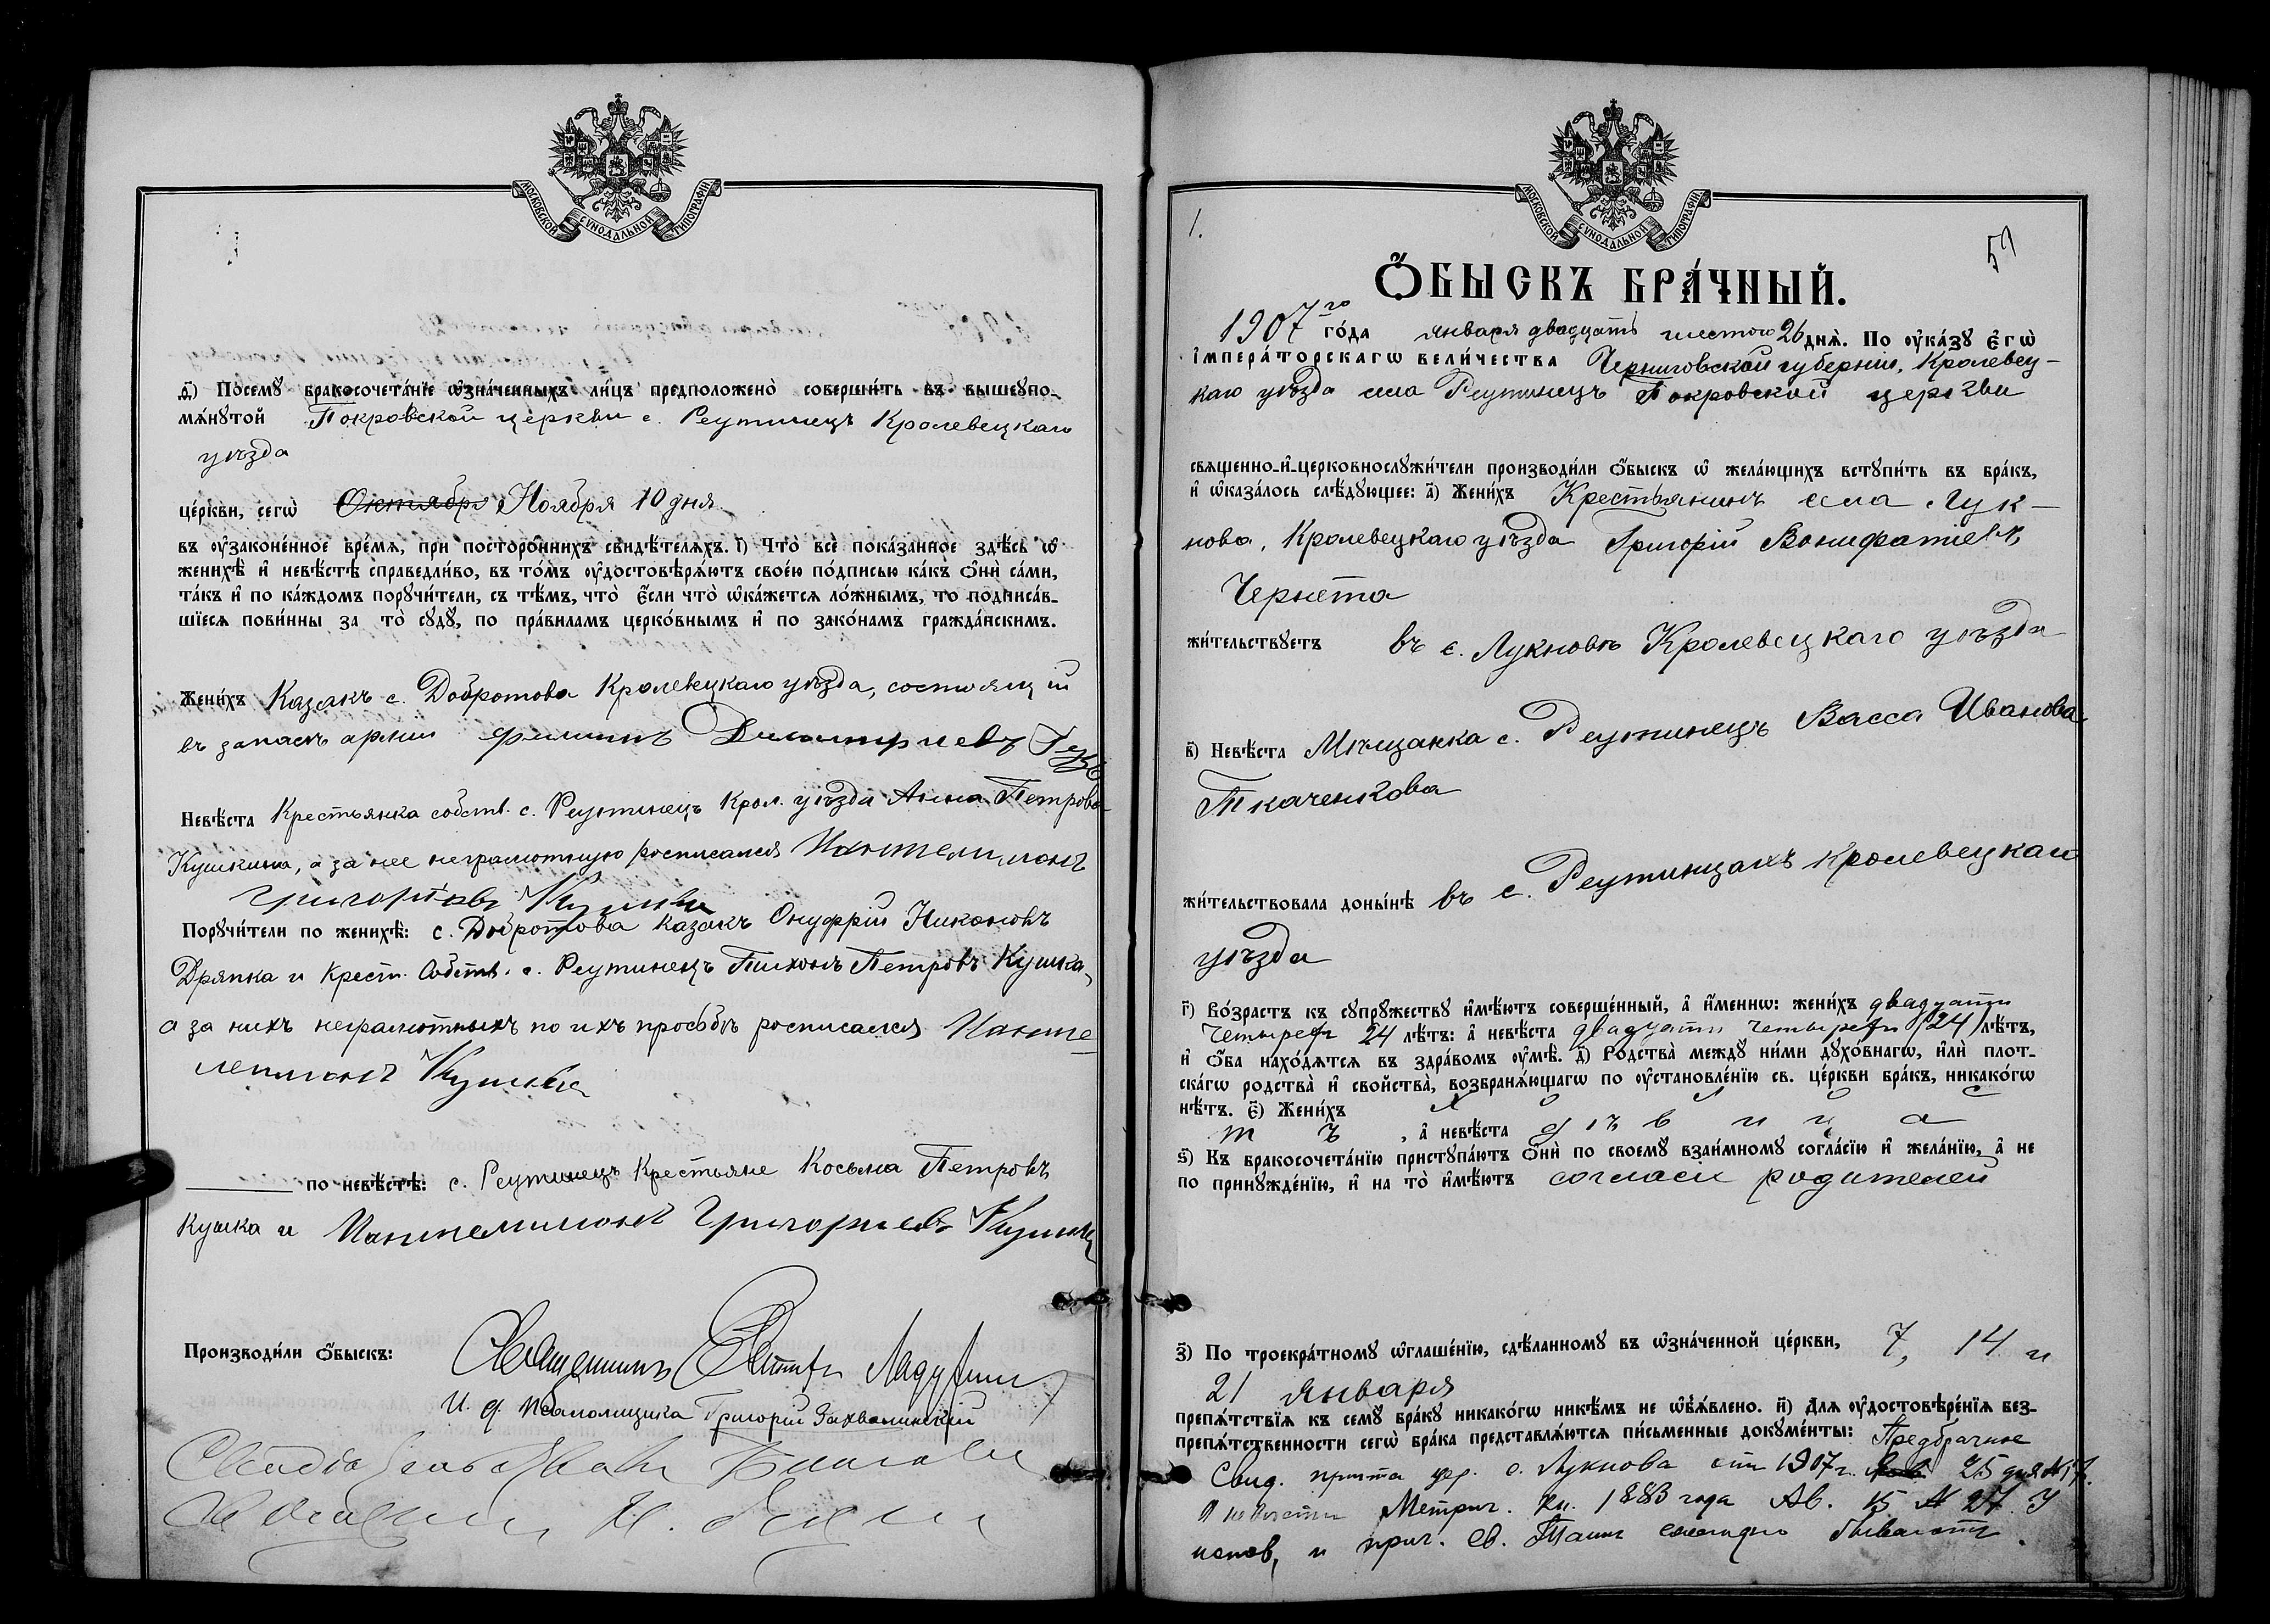 МОСКОВСКОЙ СѴНОДАЛЬНОЙ ТИПОГРАФІИ
д҃) Посемꙋ̀ бракосочета́нїе ѡ҆зна́ченныхъ ли́цъ предположено̀ соверши́ть въ вышеꙋпо-
мѧ́нꙋтой Покровской церкви с. Реутинецъ Кролевецкаго
уѣзда
це́ркви, сегѡ̀ Октября Ноября 10 дня
въ ᲂу҆законе́нное вре́мѧ, при посторо́ннихъ свидѣ́телѧхъ. і҃) Что̀ всѐ пока́занное здѣ́сь ѡ҆
женихѣ̀ и҆ невѣ́стѣ справедли́во, въ то́мъ ᲂу҆достовѣрѧ́ютъ свое́ю по́дписью ка́къ ѻ҆нѝ са́ми,
та́къ и҆ по ка́ждомъ порꙋчи́тели, съ тѣ́мъ, что̀ є҆́сли что̀ ѡ҆ка́жетсѧ ло́жнымъ, то подписа́в-
шїесѧ пови́нны за то̀ сꙋдꙋ̀, по пра́виламъ церко́внымъ и҆ по зако́намъ гражда́нскимъ.
Жени́хъ Казакъ с. Добротова Кролевецкаго уѣзда, состоящій
въ запасѣ арміи Филиппъ Димитріевъ
Невѣ́ста Крестьянка собств. с. Реутинецъ Крол. уѣзда Анна Петрова
Кушкина, а за нее неграмотную росписался Пантелимонъ
Григоріевъ Кушка
Порꙋчи́тели по женихѣ̀: с. Добротова казакъ Онуфрій Никоновъ
Дряпка и Крест. Собств. с. Реутинецъ Тихонъ Петровъ Кушка,
а за нихъ неграмотныхъ по ихъ просьбѣ росписался Панте-
лемонъ Кушка
по невѣ́стѣ: с. Реутинецъ Крестьяне Косьма Петровъ
Кушка и Пантелимонъ Григориевъ Кушка
Производи́ли ѻ҆́быскъ: Священникъ
И. д. псаломщика Григорій Захвалинскій
МОСКОВСКОЙ СѴНОДАЛЬНОЙ ТИПОГРАФІИ
1.
59
Ѻ҆́БЫСКЪ БРА́ЧНЫЙ.
1907го го́да января двадцать шестого 26 днѧ̀. По ᲂу҆ка́зꙋ є҆гѡ̀
і҆мпера́торскагѡ вели́чества Черниговской губерніи, Кролевец-
каго уѣзда села Реутинецъ Покровской церкви
свѧщенно-и҆-церковнослꙋжи́тели производи́ли ѻ҆́быскъ ѡ҆ жела́ющихъ встꙋпи́ть въ бра́къ,
и҆ ѡ҆каза́лось слѣ́дꙋющее: а҃) Жени́хъ Крестьянинъ села Лук-
нова, Кролевецкаго уѣзда Григорій Вонифатіевъ
Чернета
жи́тельствꙋетъ въ с. Лукновѣ Кролевецкаго уѣзда
в҃) Невѣ́ста Мѣщанка с. Реутинецъ Васса Иванова
Ткаченкова
жи́тельствовала доны́нѣ въ с. Реутинцахъ Кролевецкаго
уѣзда
г҃) Во́зрастъ къ сꙋпрꙋ́жествꙋ и҆мѣ́ютъ соверше́нный, а҆ и҆́меннѡ: жени́хъ двадцати
четырехъ 24 лѣ́тъ: а҆ невѣ́ста двадцати четырехъ 24 лѣ́тъ,
и҆ ѻ҆́ба нахо́дѧтсѧ въ здра́вомъ ᲂу҆мѣ̀. д҃) Родства̀ междꙋ̀ ни́ми дꙋхо́внагѡ, и҆лѝ плот-
ска́гѡ родства̀ и҆ свойства̀, возбранѧ́ющагѡ по ᲂу҆становле́нїю св. це́ркви бра́къ, никако́гѡ
нѣ́тъ. є҃) Жени́хъ х о л о с
т ъ, а҆ невѣ́ста д ѣ в и ц а
ѕ҃) Къ бракосочета́нїю пристꙋпа́ютъ ѻ҆нѝ по своемꙋ̀ взаи́мномꙋ согла́сїю и҆ жела́нїю, а҆ не
по принꙋжде́нїю, и҆ на то̀ и҆мѣ́ютъ согласіе родителей
з҃) По троекра́тномꙋ ѡ҆глаше́нїю, сдѣ́ланномꙋ въ ѡ҆зна́ченной це́ркви, 7, 14 и
21 января
препѧ́тствїѧ къ семꙋ̀ бра́кꙋ никако́гѡ никѣ́мъ не ѡ҆б̾ѧ́влено. и҃) Длѧ ᲂу҆достовѣре́нїѧ без-
препѧ́тственности сегѡ̀ бра́ка представлѧ́ютсѧ пи́сьменные докꙋме́нты: Предбрачное
Свид. причта цер. с. Лукнова отъ 1907 г. 25 дня № 17.
О невѣстѣ Метрич. кн. 1883 года Ав. 15 № 27. У
испов. и прич. Св. Таинъ ежегодно бываютъ.